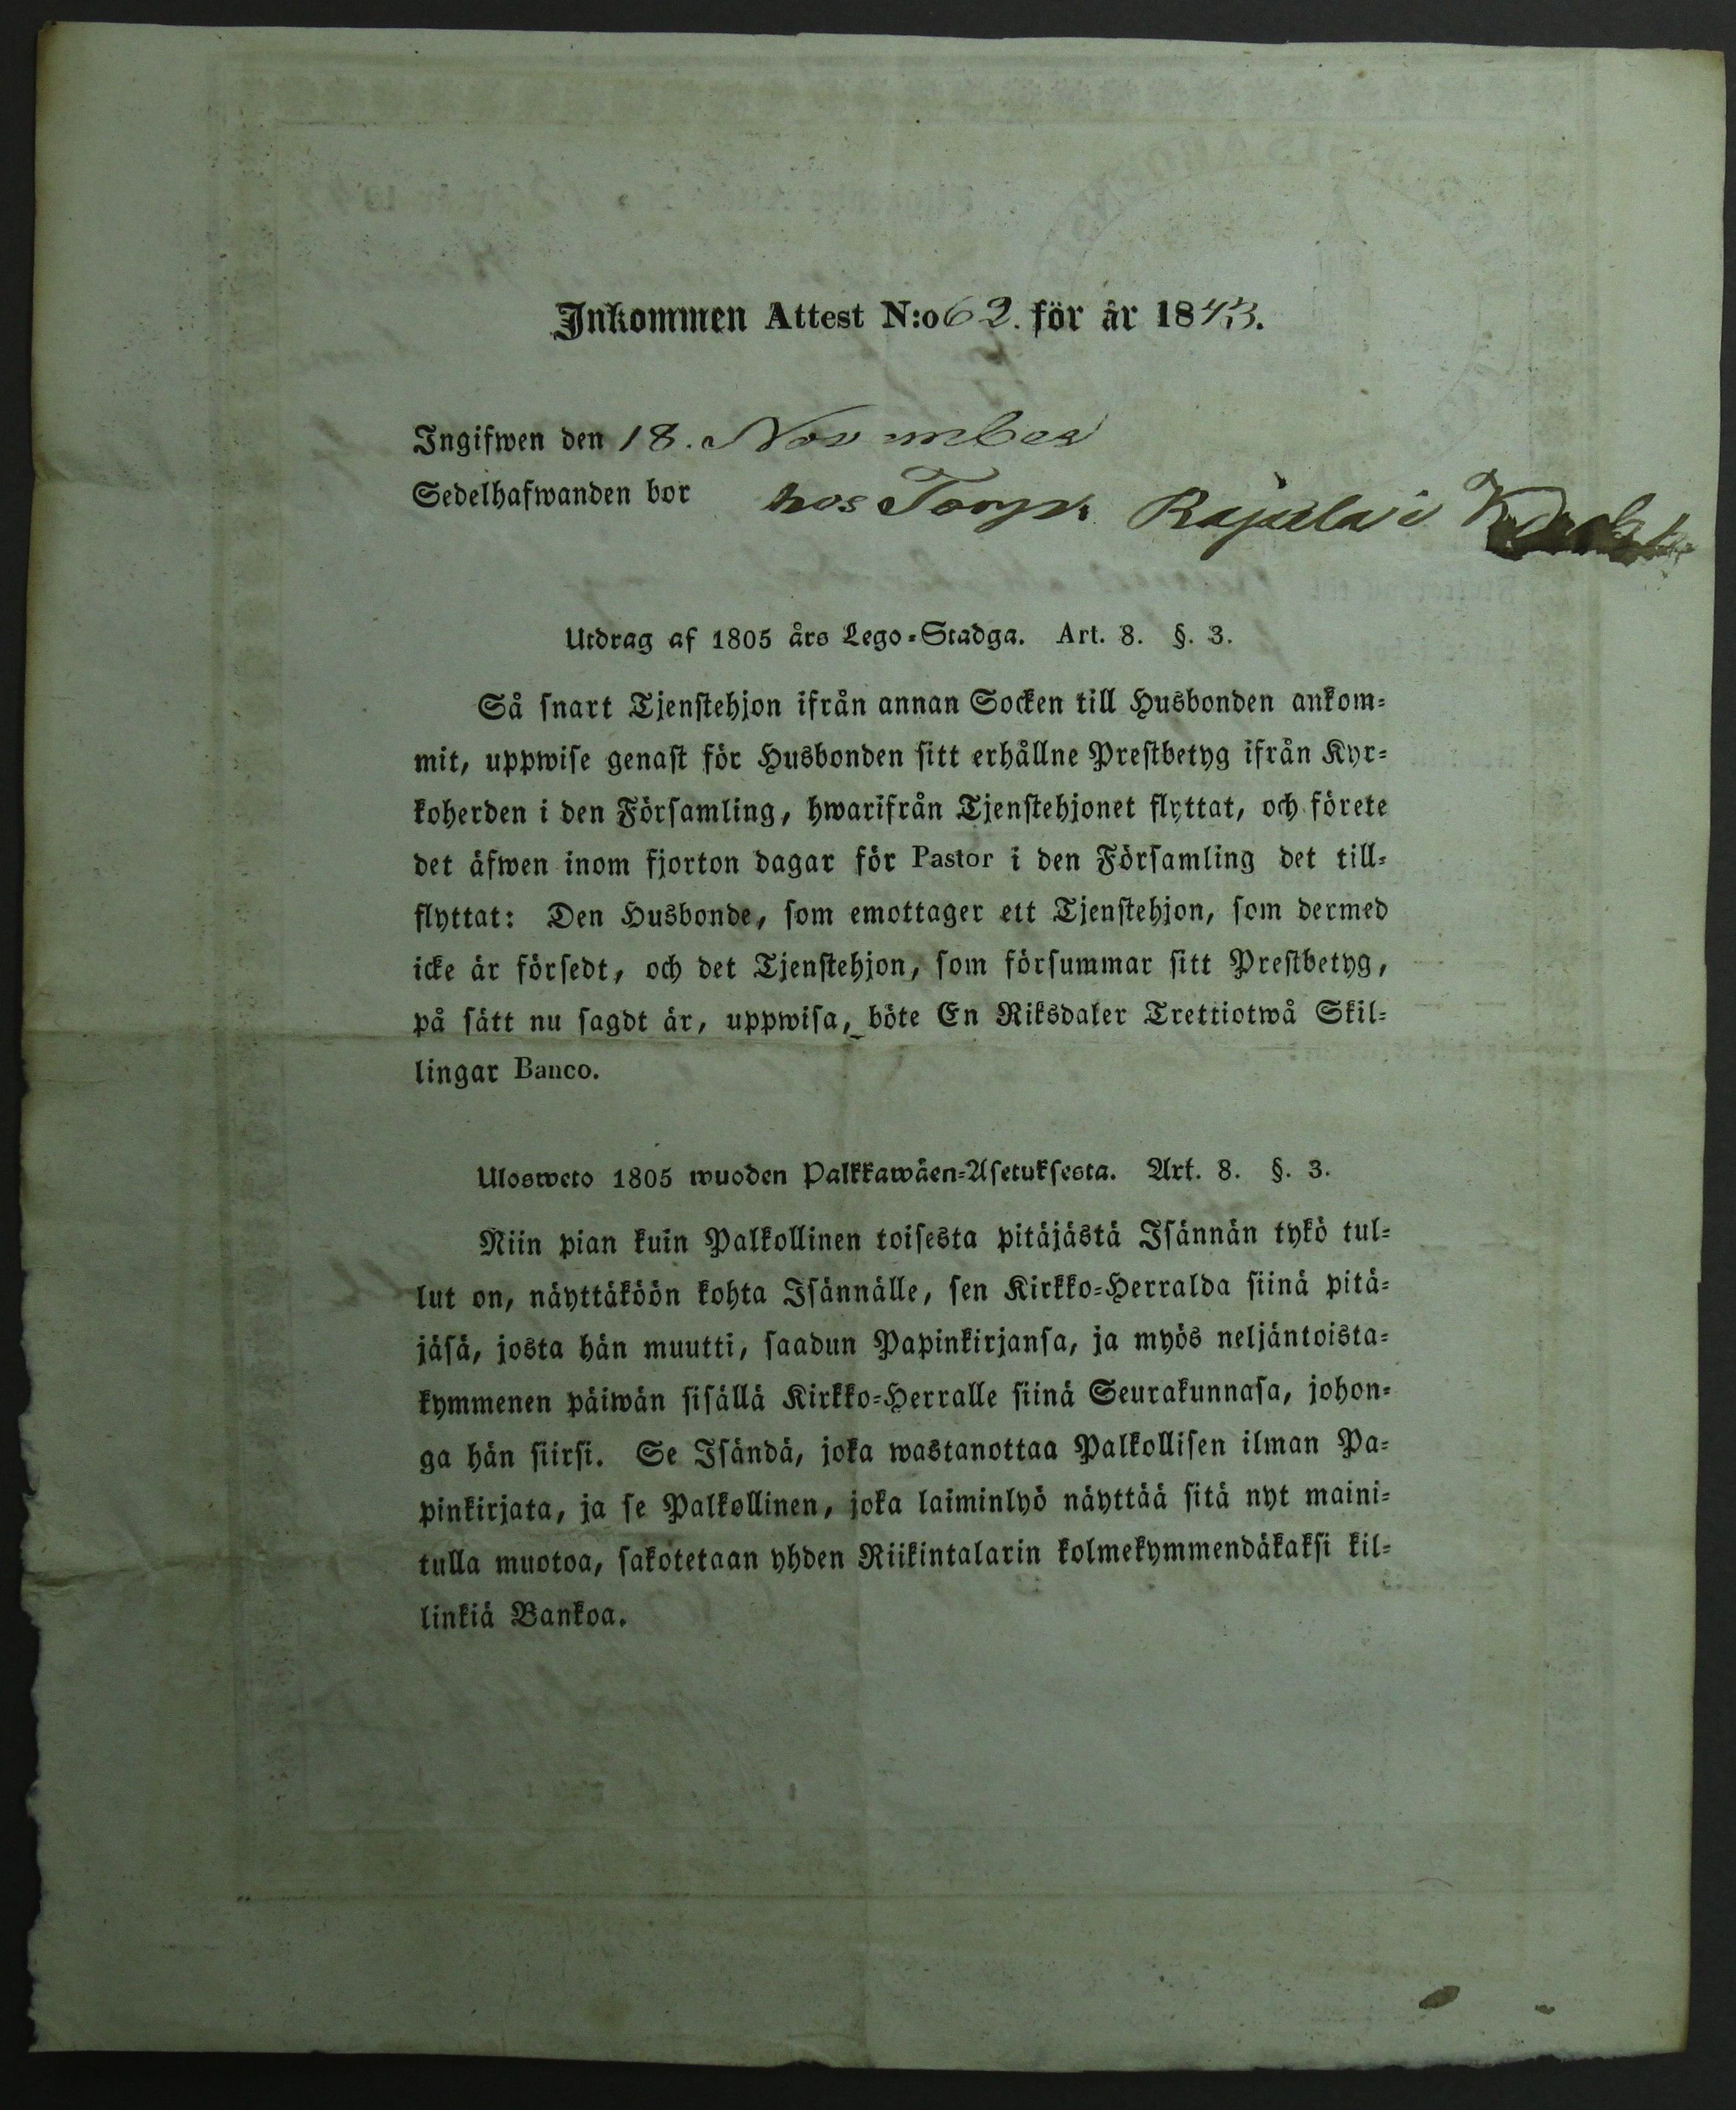 Inkommen Attest N:o 62. för år 1843.
Ingifwen den 18. November
Sedelhafwanden bor hos Torp. Rajala i
Utdrag af 1805 års Lego-Stadga. Art. 8. §. 3.
Så snart Tjenstehjon ifrån annan Socken till Husbonden ankom-
mit, uppwise genast för Husbonden sitt erhållne Prestbetyg ifrån Kyr-
koherden i den Församling, hwarifrån Tjenstehjonet flyttat, och förete
det äfwen inom fjorton dagar för Pastor i den Församling det till-
flyttat: Den Husbonde, som emottager ett Tjenstehjon, som dermed
icke är försedt, och det Tjenstehjon, som försummar sitt Prestbetyg,
på sätt nu sagdt är, uppwisa, böte En Riksdaler Trettiotwå Skil-
lingar Banco.
Ulosweto 1805 wuoden Palkkawäen-Asetuksesta. Art. 8. §. 3.
Niin pian kuin Palkollinen toisesta pitäjästä Isännän tykö tul-
lut on, näyttäköön kohta Isännälle, sen Kirkko-Herralda siinä pitä-
jäsä, josta hän muutti, saadun Papinkirjansa, ja myös neljäntoista-
kymmenen päiwän sisällä Kirkko-Herralle siinä Seurakunnasa, johon-
ga hän siirsi. Se Isändä, joka wastanottaa Palkollisen ilman Pa-
pinkirjata, ja se Palkollinen, joka laiminlyö näyttää sitä nyt maini-
tulla muotoa, sakotetaan yhden Riikintalarin kolmekymmendäkaksi kil-
linkiä Bankoa.